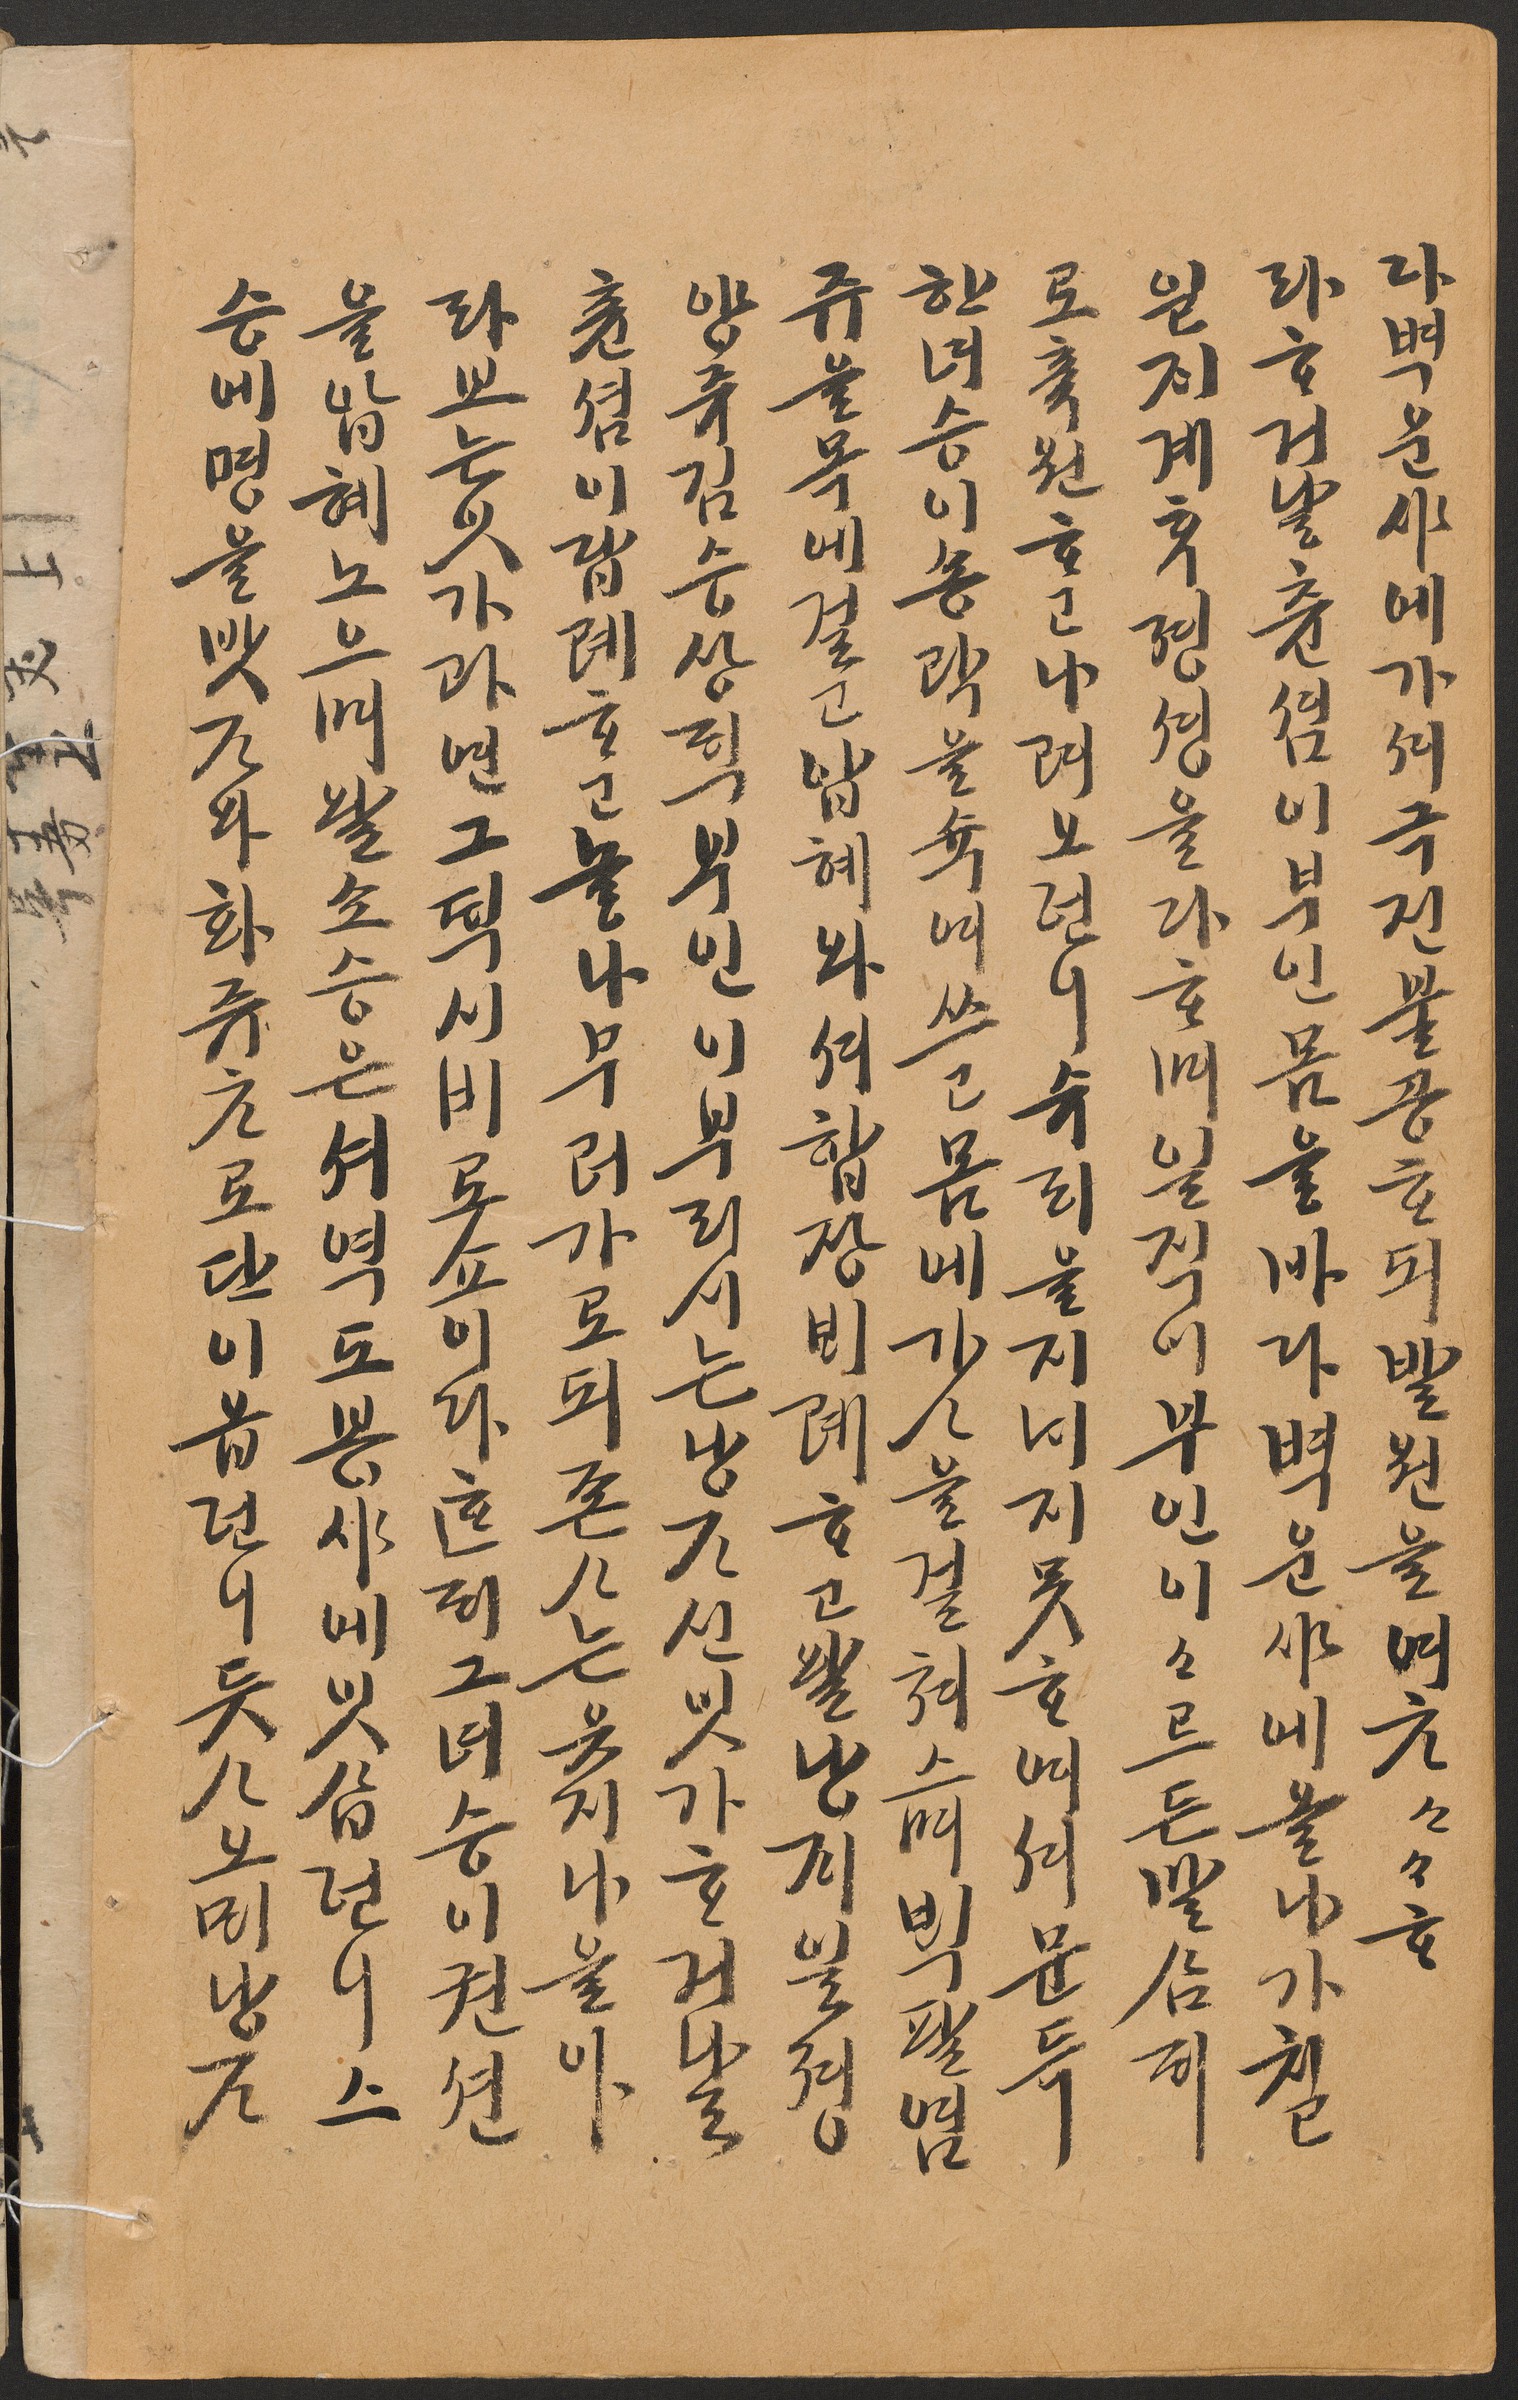 다 벽운사에 가셔 극진 불공ᄒᆞ되 발원을 며ᄎᆞ ᄉᆞᄉᆞᄒᆞ
라 ᄒᆞ거날 츈셤이 부인 몸을 바다 벽운사에 올나가 칠
일 지계 후 졍셩을 다ᄒᆞ며 일직이 부인이 ᄉᆞ르든 말삼ᄃᆡ
로 축원ᄒᆞ고 나려 보던니 슈리을 지ᄂᆡ지 못ᄒᆞ며셔 문득
한 녀승이 송락을 슉여 쓰고 몸에 가ᄉᆞ을 걸쳐스며 ᄇᆡᆨ팔염
쥬을 목에 걸고 압헤 와셔 합장ᄇᆡ례ᄒᆞ고 왈 낭ᄌᆡ 일졍
양쥬 김승상ᄃᆡᆨ 부인이 부리시는 낭ᄌᆞ신잇가 ᄒᆞ거날
츈셤이 답례ᄒᆞ고 놀나 무러 가로되 존ᄉᆞ는 웃지 나을 아
라 보는잇가 과연 그ᄃᆡᆨ 시비로쇼이다 ᄒᆞᆫᄃᆡ 그 녀승이 권션
을 압헤 노으며 왈 소승은 셔역도 봉사에 잇삽던니 스
승에 명을 밧ᄌᆞ와 화쥬ᄎᆞ로 단이옵던니 듯ᄉᆞ오ᄆᆡ 낭ᄌᆞ